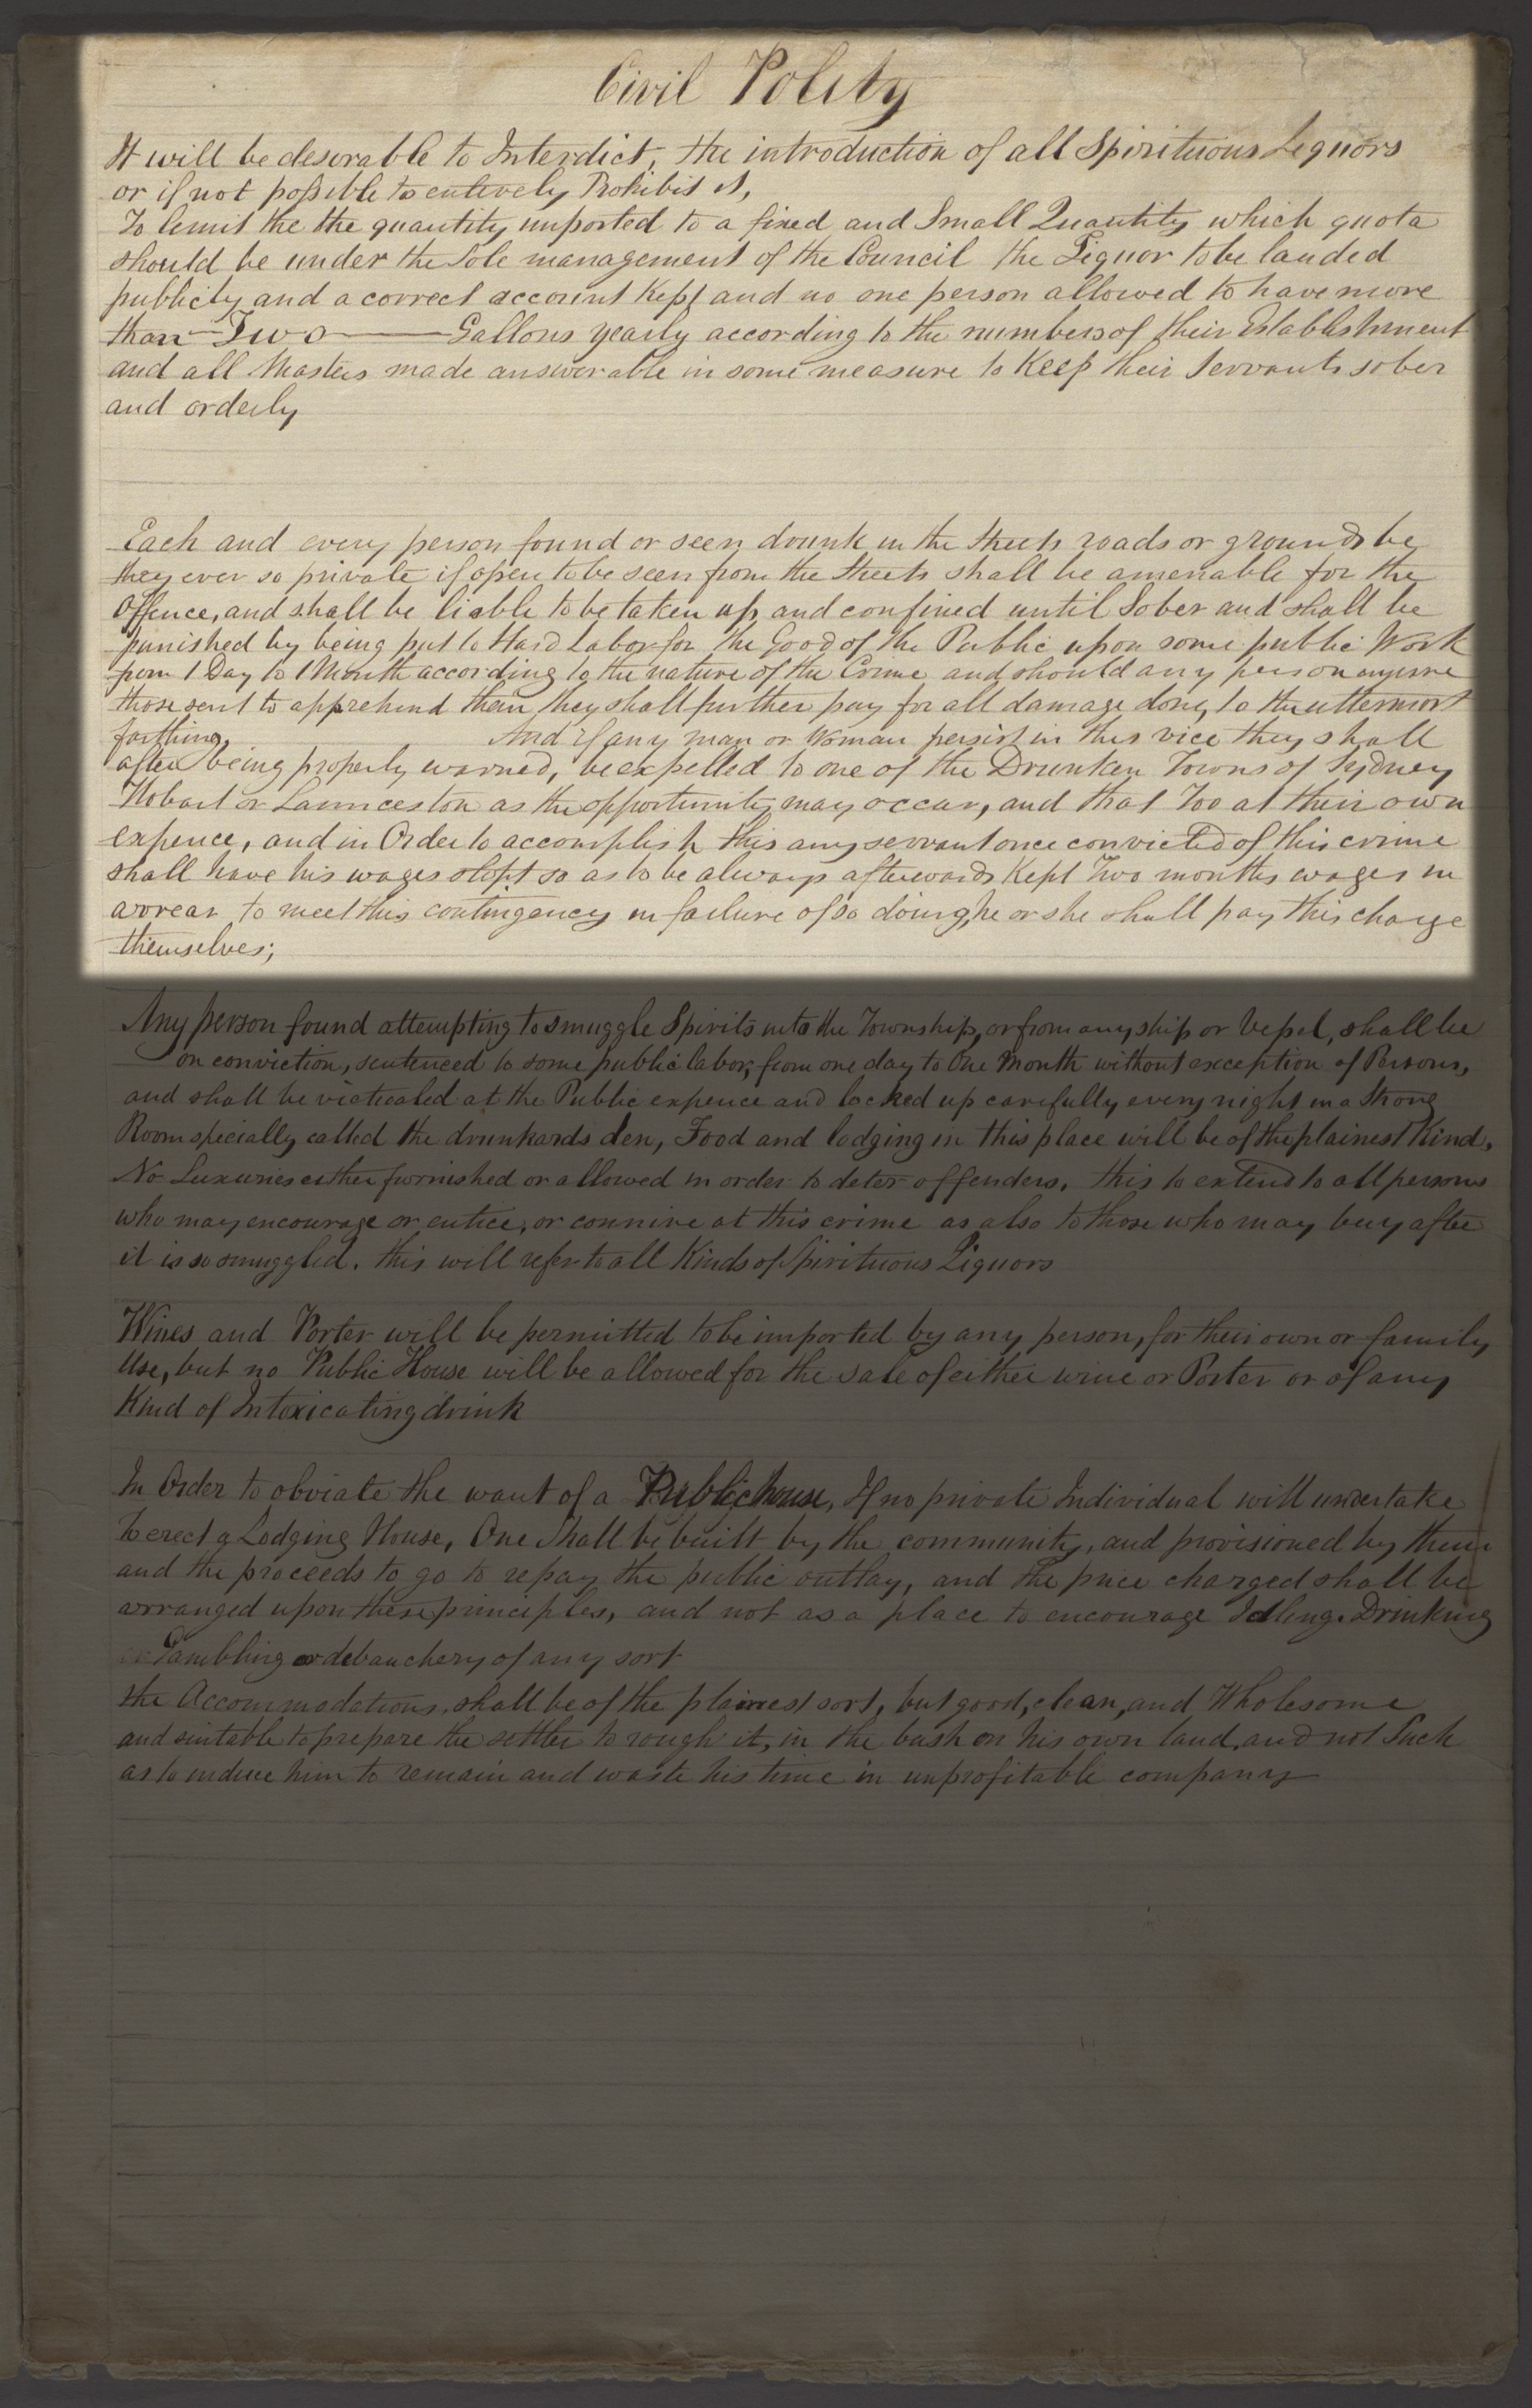 Civil Polity
It will be desorable to Interdict, the introduction of all Spirituous Liquors
or if not possible to entirely Prohibit it,
To limit the the quantity imported to a fixed and Small Quantity which quota
should be under the Sole management of the Council the Liquor to be landed
publicly and a correct account Kept and no one person allowed to have more
than Two Gallons yearly according to the numbers of their Establishment
and all Masters made answerable in some measure to Keep their Servants sober
and orderly
Each and every person found or seen drunk in the Streets roads or grounds be
they ever so private if open to be seen from the Streets shall be amenable for the
Offence, and shall be liable to be taken up and confined until Sober and shall be
punished by being put to Hard Labor for the Good of the Public upon some public Work
from 1 Day to 1 Month according to the nature of the Crime and should any person injure
those sent to apprehend them they shall further pay for all damage done, to the uttermost
farthing. And if any man or Woman persist in this vice they shall
after being properly warned, be expelled to one of the Drunken Towns of Sydney
Hobart or Launceston as the opportunity may occur, and that Too at their own
expence, and in Order to accomplish this any servant once convicted of this crime
shall have his wages stopt so as to be always afterwards Kept Two months wages in
arrear to meet this contingency in failure of so doing, he or she shall pay this charge
themselves;
Any person found attempting to smuggle Spirits into the Township, or from any ship or Vessel, shall be
on conviction, sentenced to some public labor, from one day to One Month without exception of Persons,
and shall be victualed at the Public expence and locked up carefully every night in a Strong
Room specially called the drunkards den, Food and lodging in this place will be of the plainest Kind,
No Luxuries either furnished or allowed in order to deter offenders. this to extend to all persons
who may encourage or entice, or connive at this crime as also to those who may buy after
it is so smuggled. this will refer to all Kinds of Spirituous Liquors
Wines and Porter will be permitted to be imported by any person, for their own or family
Use, but no Public House will be allowed for the sale of either wine or Porter or of any
Kind of Intoxicating drink
In Order to obviate the want of a Public house, If no private Individual will undertake
to erect a Lodging House, One Shall be built by the community, and provisioned by them
and the proceeds to go to repay the public outlay, and the price charged shall be
arranged upon these principles, and not as a place to encourage Idling. Drinking
Gambling or debauchery of any sort
the Accommodations, shall be of the plainest sort, but good, clean, and Wholesome
and suitable to prepare the settler to rough it, in the bush on his own land, and not Such
as to induce him to remain and waste his time in unprofitable company